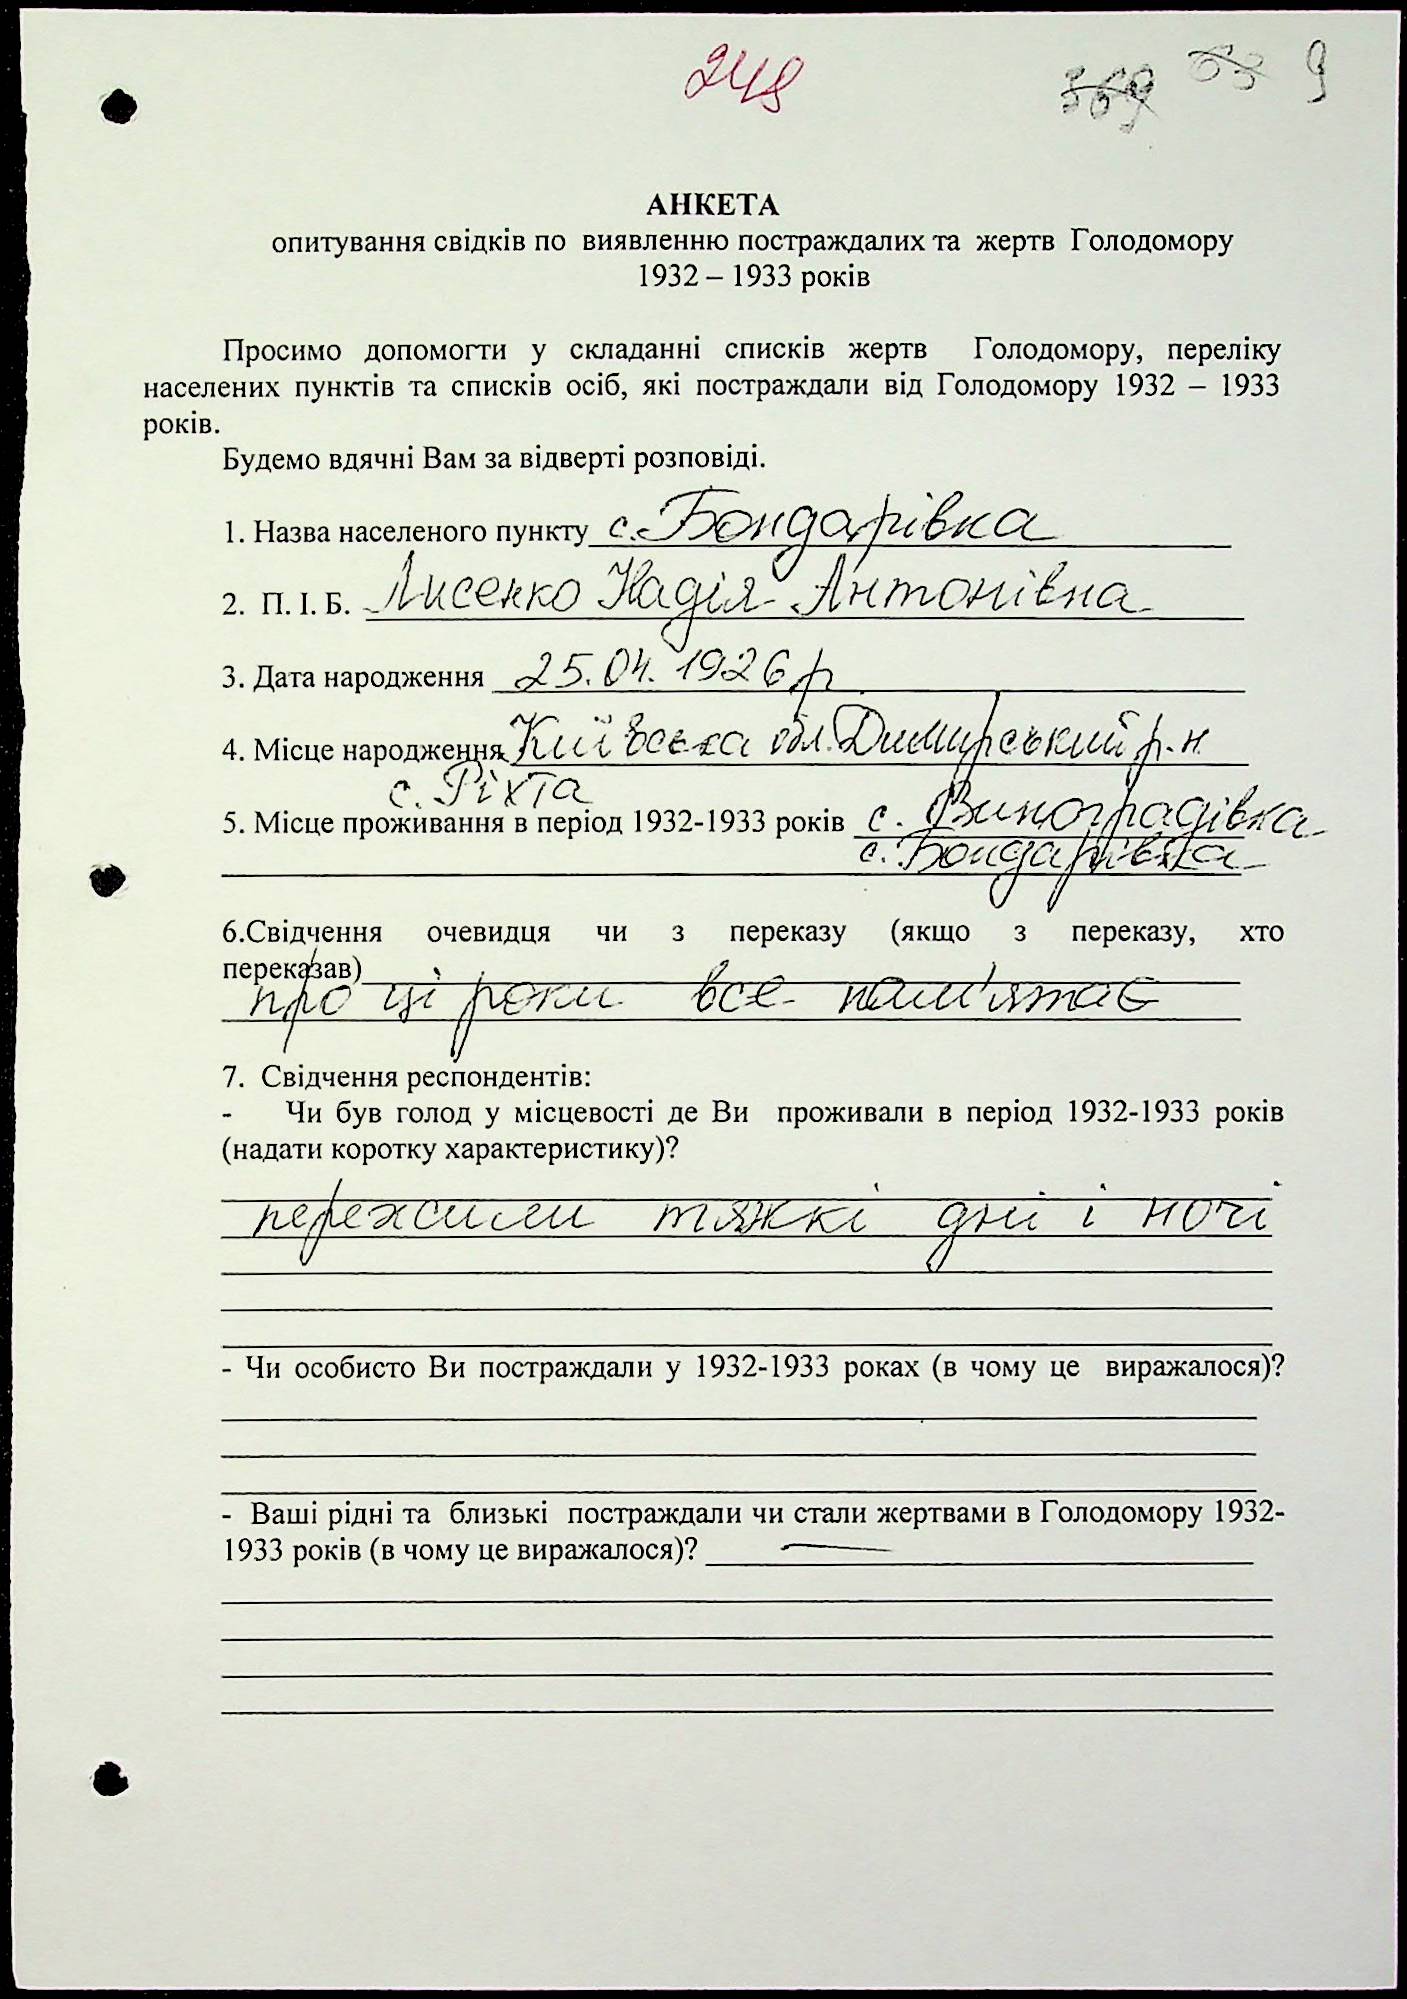 248 369 63 9
АНКЕТА
опитування свідків по виявленню постраждалих та жертв Голодомору
1932 – 1933 років
Просимо допомогти у складанні списків жертв Голодомору, переліку
населених пунктів та списків осіб, які постраждали від Голодомору 1932 – 1933
років.
Будемо вдячні Вам за відверті розповіді.
1. Назва населеного пункту с. Бондарівка
2. П. І. Б. Лисенко Надія Антонівна
3. Дата народження 25.04.1926 р
4. Місце народження Київська обл. Димирський р-н
с. Ріхта
5. Місце проживання в період 1932-1933 років с. Виноградівка
с. Бондарівка
6.Свідчення очевидця чи з переказу (якщо з переказу, хто
переказав)
про ці роки все пам'ятає
7. Свідчення респондентів:
- Чи був голод у місцевості де Ви проживали в період 1932-1933 років
(надати коротку характеристику)?
пережили тяжкі дні і ночі
- Чи особисто Ви постраждали у 1932-1933 роках (в чому це виражалося)?
- Ваші рідні та близькі постраждали чи стали жертвами в Голодомору 1932-
1933 років (в чому це виражалося)? —